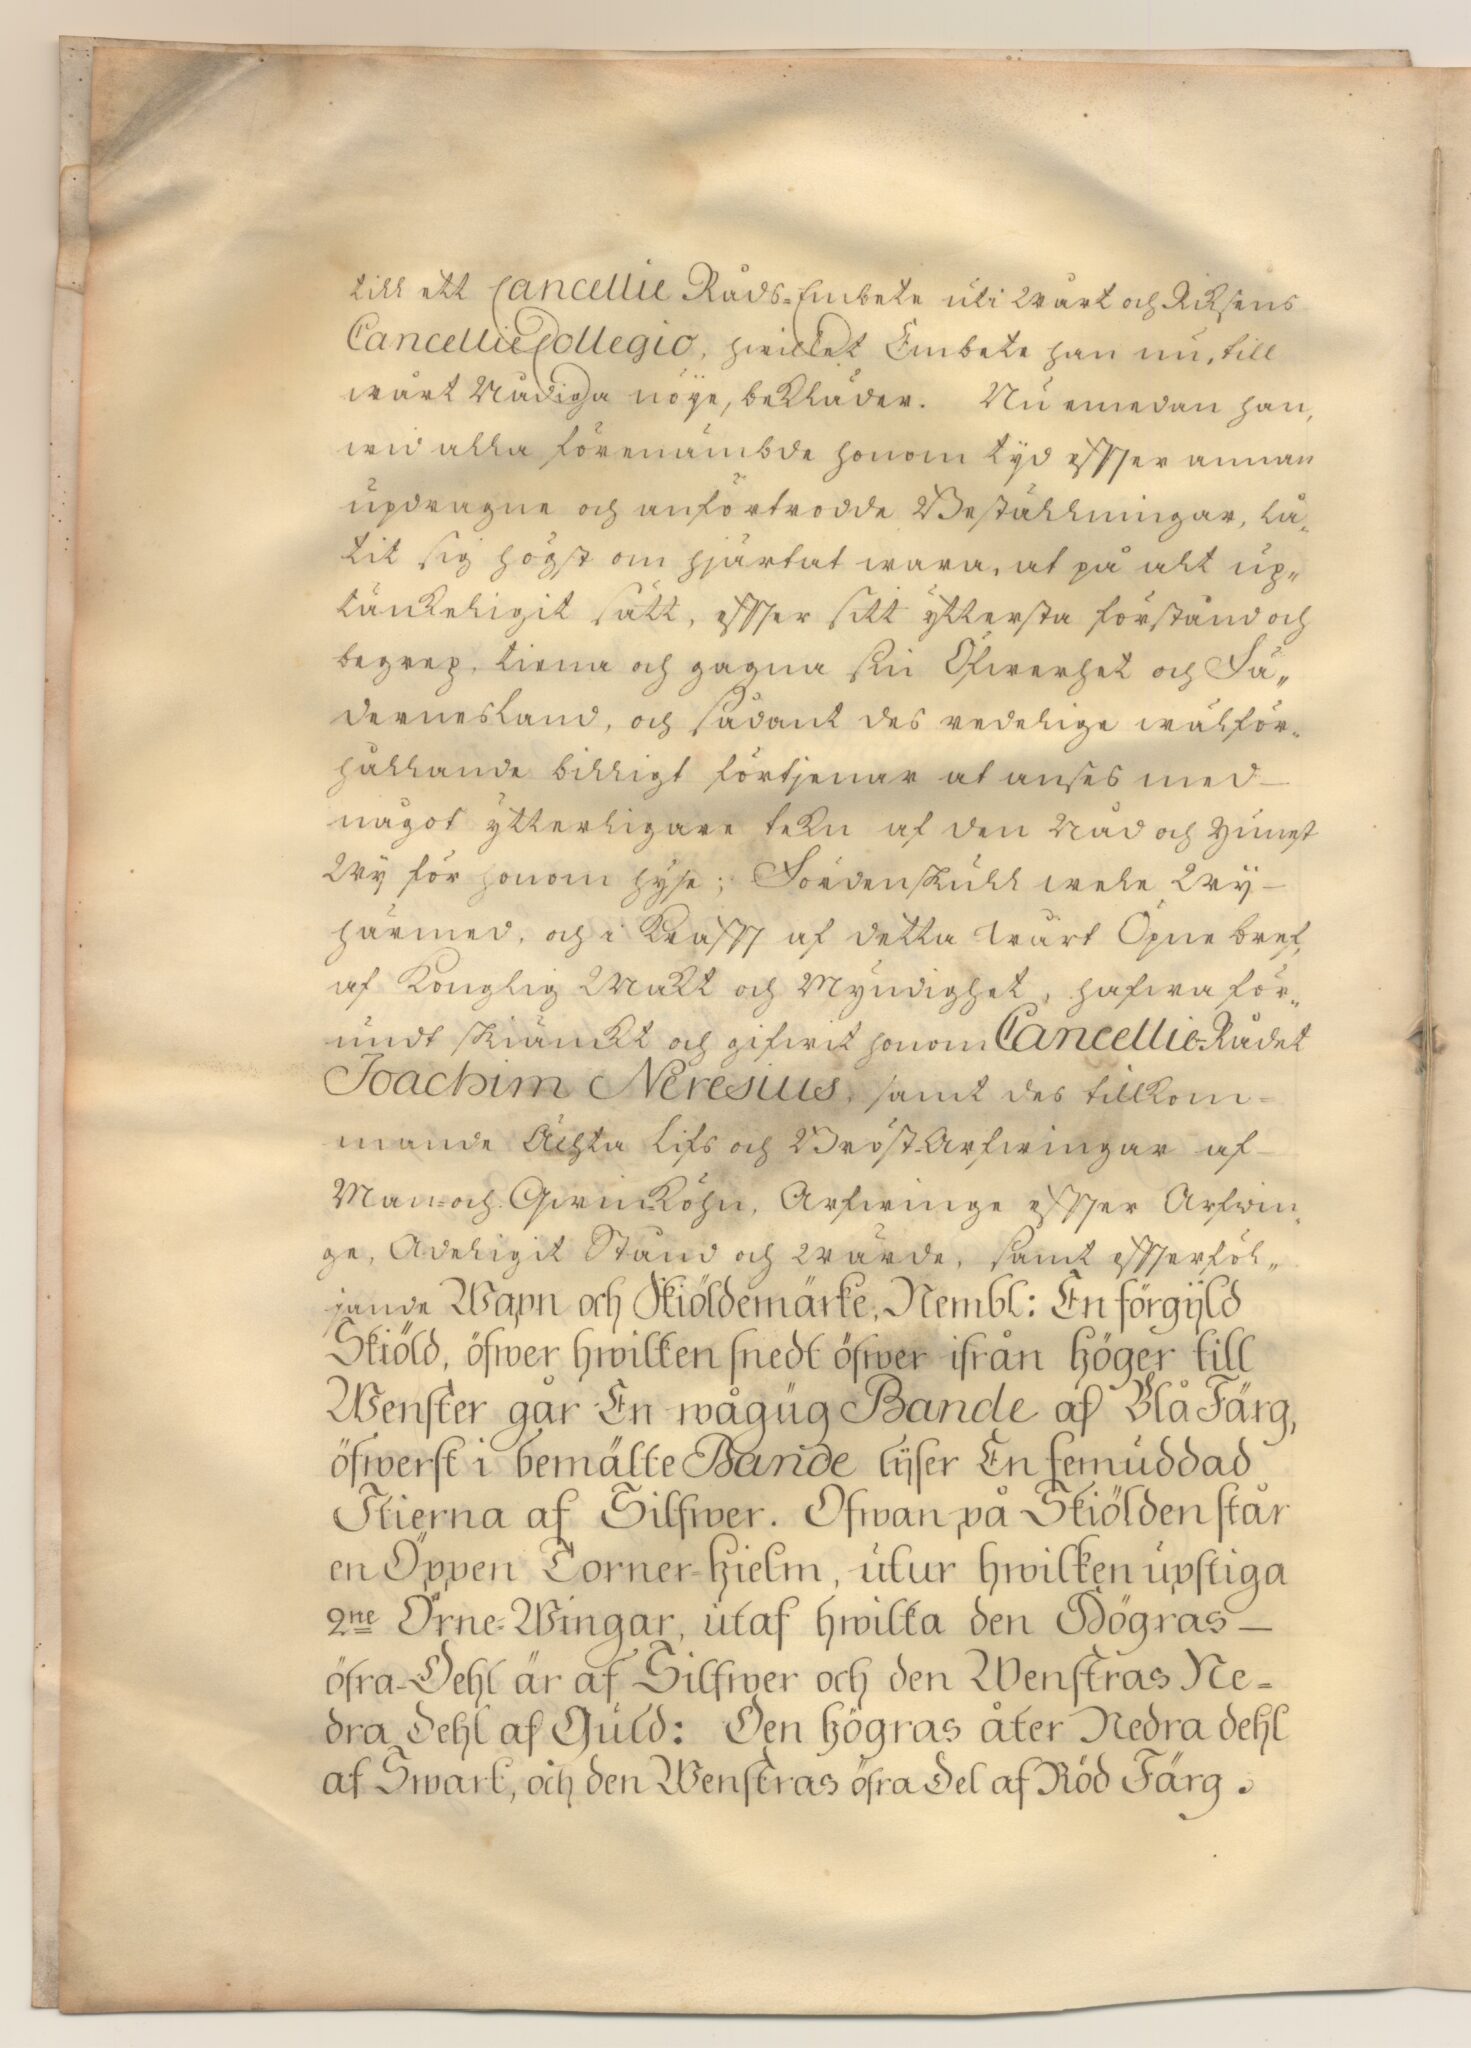 till ett Cancellie Råds-Embete uti wårt och Riksens
Cancellie Collegio, hwilket Embete han nu, till
wårt Nådiga nöye, bekläder. Nu emedan han,
wid alla förenämbde honom tÿd effter annan
updragne och anförtrodde Beställningar, lå„
tit sig högst om hjärtat wara, at på alt up„
tänkeligit sätt, effter sitt ÿttersta förstånd och
begrep, tiena och gagna sin Öfwerhet och Fä„
dernesland, och sådant des redelige wälför„
hållande billigt förtjenar at anses med—
något ÿtterligare tekn af den Nåd och Ynnest
Wÿ för honom hÿse; Fördenskull wele Wÿ—
härmed, och i Krafft af detta wårt Öpne bref,
af Konglig Makt och Myndighet, hafwa för„
undt skiänckt och gifwit honom Cancellie-Rådet
Joachim Neresius, samt des tillkom=
mande Ächta Lifs och Bröst-Arfwingar af—
Man= och Qwinköhn, Arfwinge effter Arfwin„
ge, Adeligit Stånd och wärde, samt effterföl„
jande Wapn och Skiöldemärke, Nembl: En förgÿld
Skiöld, öfwer hwilken snedt öfwer ifrån höger till
Wenster går En wågüg Bande af Blå Färg,
öfwerst i bemälte Bande lÿser En femuddad
Stierna af Silfwer. Ofwan på Skiölden står
en Öppen Torner-Hielm, utur hwilken upstiga
2ne Örne-Wingar, utaf hwilka den Högras—
öfra Dehl är af Silfwer och den Wenstras Ne=
dra Dehl af Guld: Den högras åter Nedra dehl
af Swart, och den Wenstras öfra Del af Röd Färg.